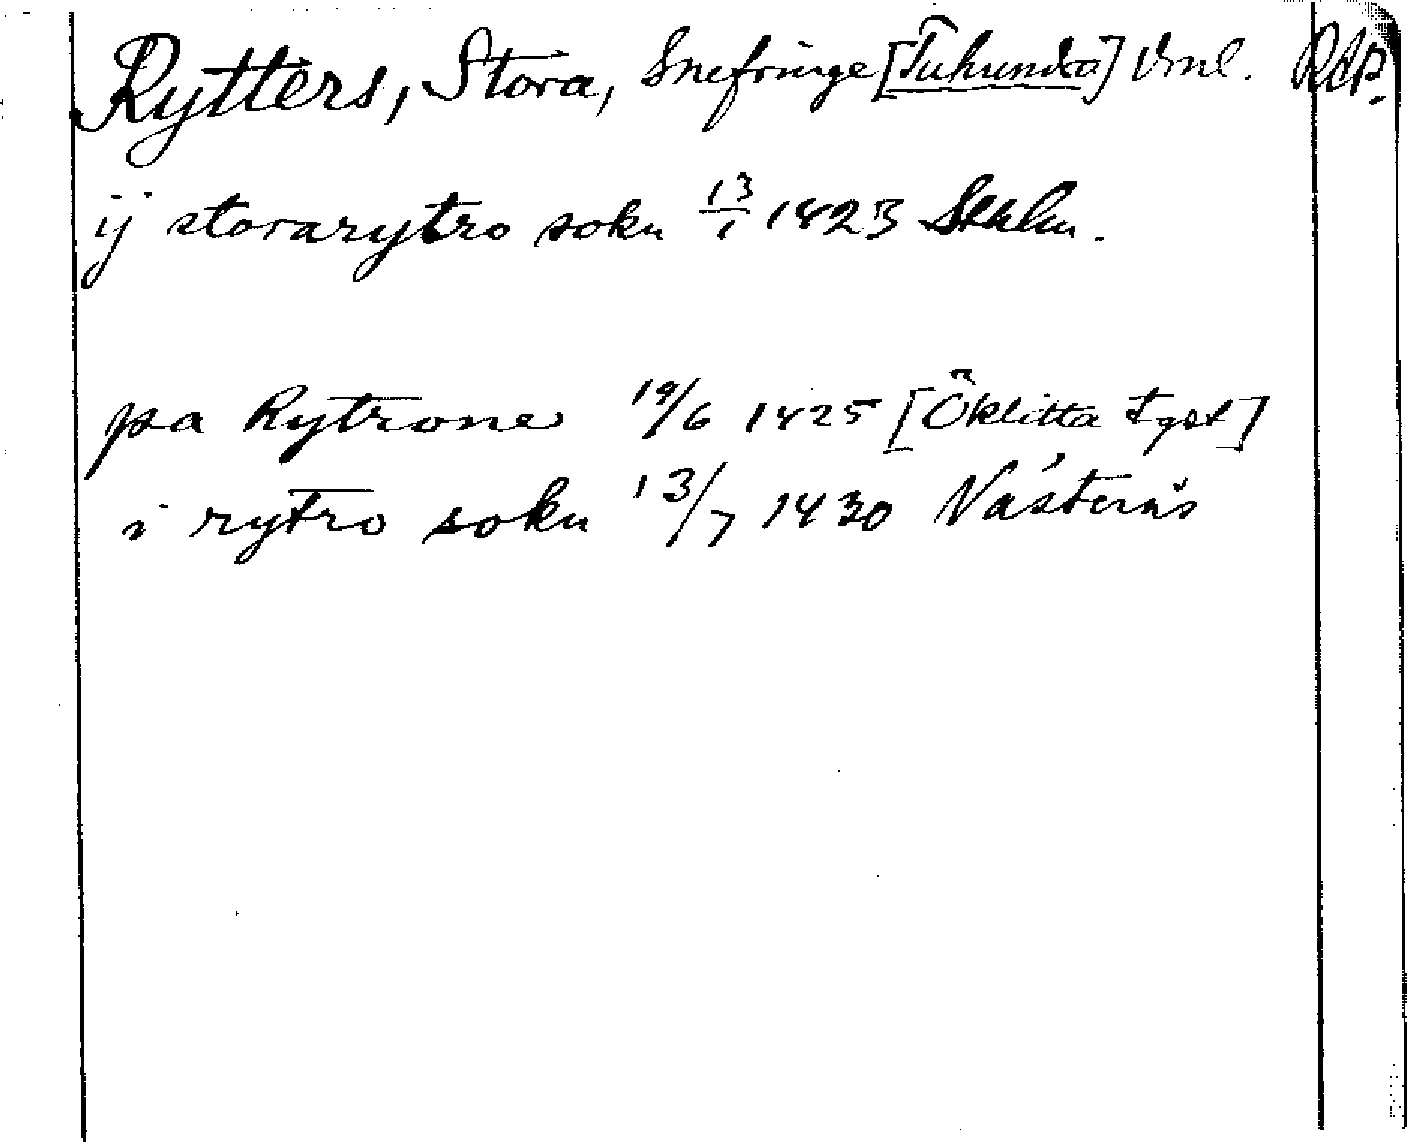 Rytters, Stora, Snefringe [Tuhundra] Vml. RAP.
ij storarytro sokn 13/1 1423 Sthlm.
pa Rytrone 19/6 1425 [Öklitta Tgst]
i rytro sokn 13/7 1430 Västerås